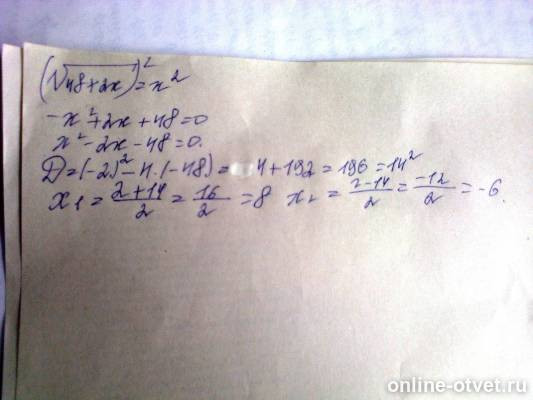 (√48+2x)² = x²
-x²+2x+48=0
x²-2x-48=0.
D=(-2)²-4·(-48)= 4+192=196=14²
x₁ = (2+14)/2 = 16/2 = 8 x₂ = (2-14)/2 = -12/2 = -6.
online-otvet.ru